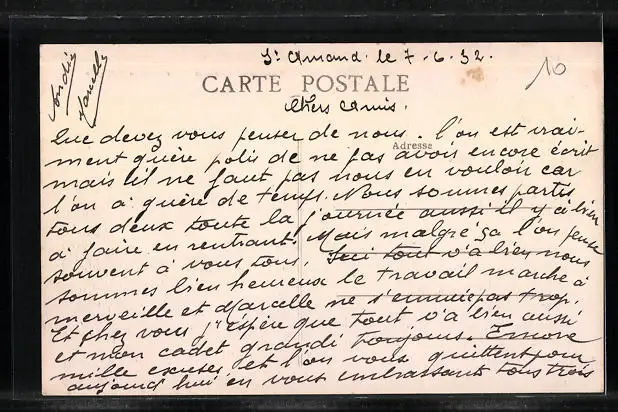 St Amand le 7-6.32.
10
CARTE POSTALE
Chers Amis.
Adresse
Que devez vous penser de nous. l'on est vrai-
ment guère polis de ne pas avoir encore écrit
mais il ne faut pas nous en vouloir car
l'on a guère de temps. Nous sommes partis
tous deux toute la journée aussi il y à bien
à faire en rentrant. Mais malgré ça l'on pense
souvent à vous tous. Ici tout v'a bien nous
sommes bien heureux le travail marche à
merveille et Marcelle ne s'ennuie pas trop.
Et chez vous j'espère que tout v'a bien aussi
et mon cadet grandi toujours. Encore
mille excuses et l'on vous quittent pour
aujourd hui en vous embrassants tous trois
Marcelle